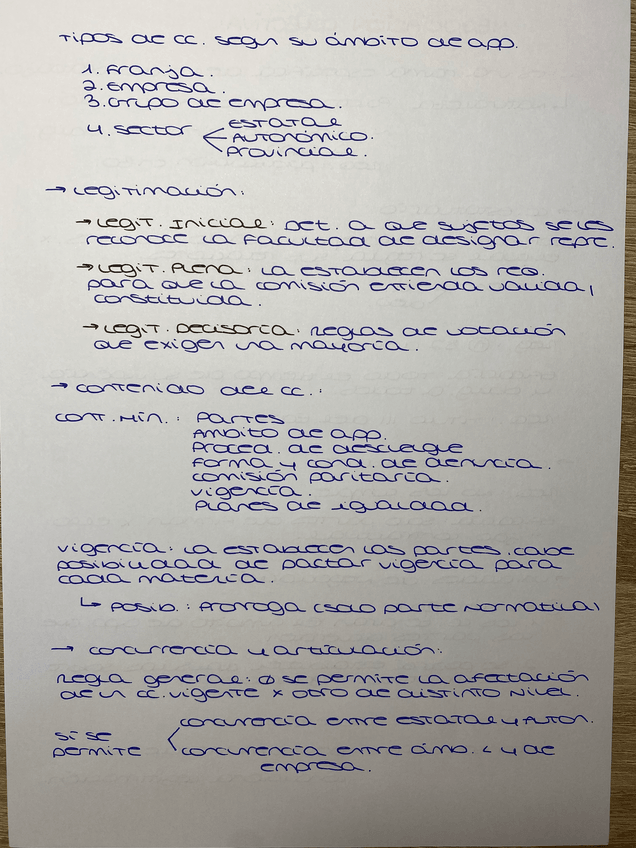 Tipos de CC. segun su ámbito de app.
1. Franja.
2. Empresa.
3. Grupo de empresa.
4. Sector
Estatal
Autonómico.
Provincial.
→ Legitimación:
→ Legit. Inicial: Det. a que sujetos se les
reconoce la facultad de designar repre.
→ Legit. Plena: La establecen los req.
para que la comisión entienda valida,
constituida.
→ Legit. Decisoria: Reglas de votación
que exigen una mayoría.
→ Contenido del CC.:
Cont. Mín.: Partes
Ámbito de app.
Proced. de descuelgue
Forma y cond. de denuncia.
Comisión paritaria.
Vigencia.
Planes de igualdad.
Vigencia: La establecen las partes. Cabe
posibilidad de pactar vigencia para
cada materia.
↳ Posib.: Prorroga (solo parte normativa)
→ Concurrencia y articulación:
Regla general: Ø se permite la afectación
de un CC. vigente x otro de distinto nivel.
Sí se
permite
Concurrencia entre estatal y auton.
Concurrencia entre ámb. < y de
empresa.